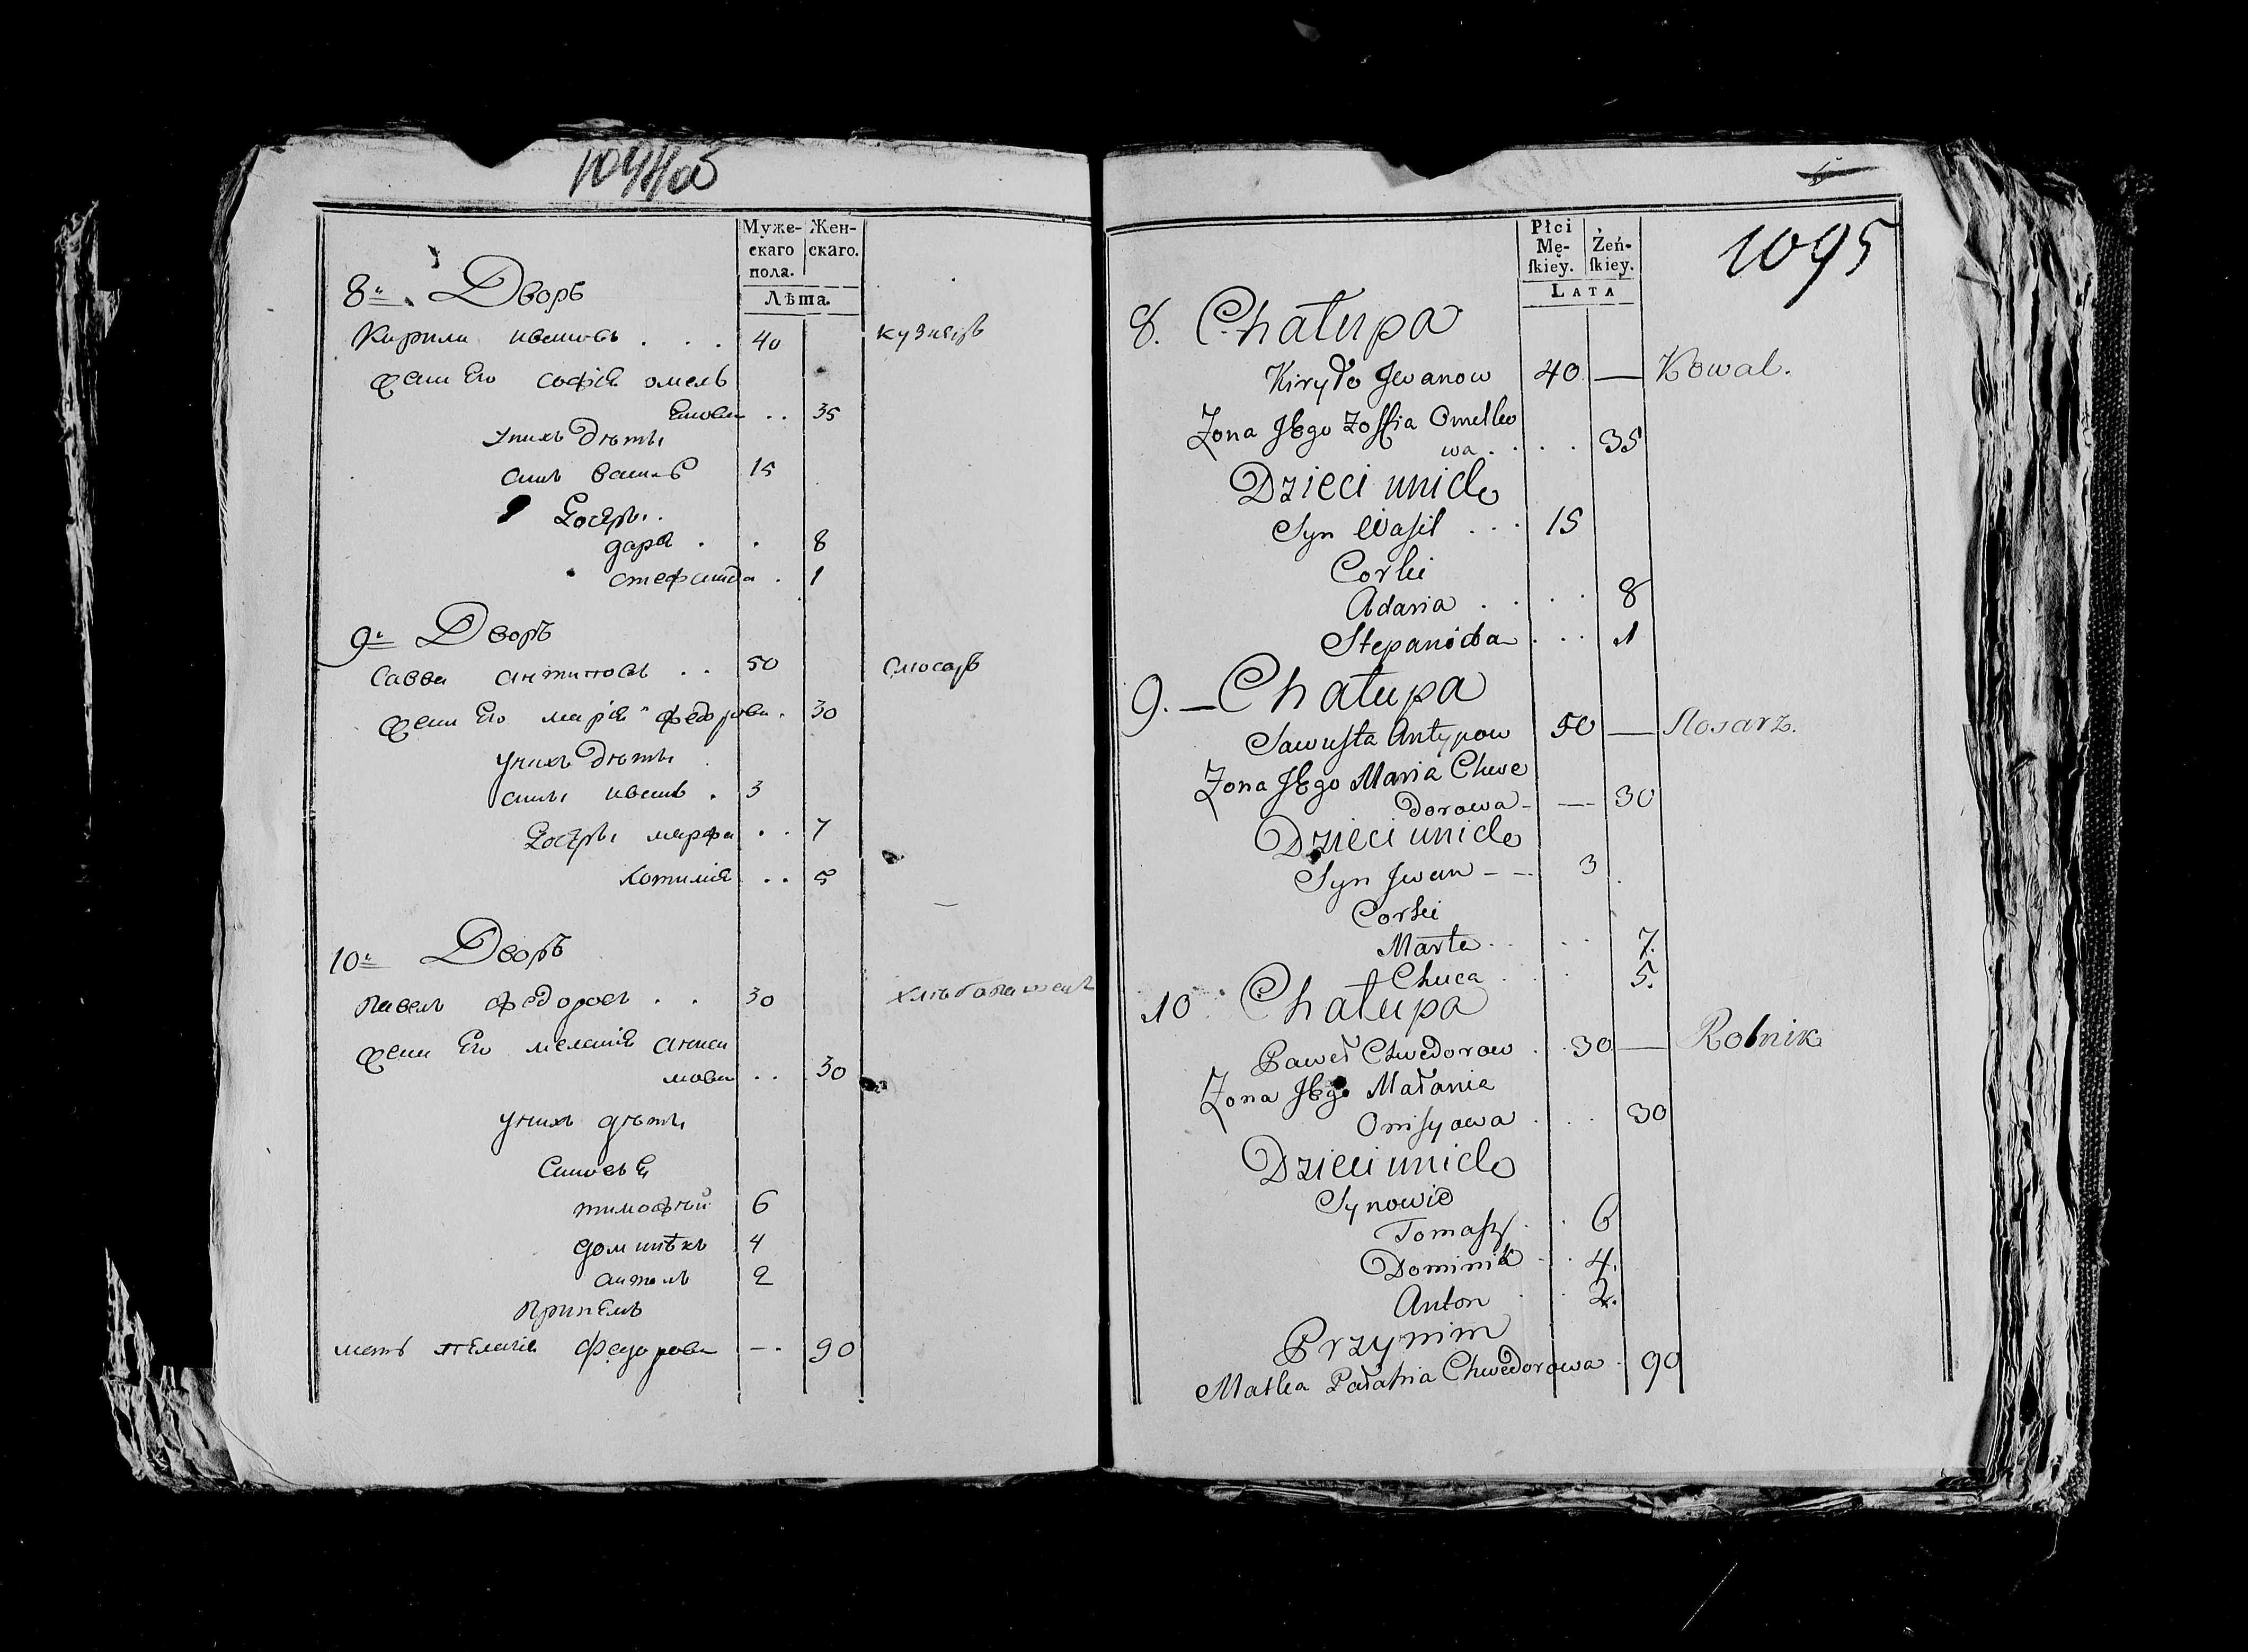 1094об
Муже-
скаго
пола.
Жен-
скаго.
Лѣта.
8й Дворъ
Кирила ивановъ . . . 40 кузнецъ
Жена Его софія омелъ
яновна . . 35
Унихъ Дѣти
синъ василъ 15
Дочери.
дарія . . 8
стефанида . 1
9й Дворъ
Савва антиповъ . . 50 слюсаръ
Жена Его марія федорова . 30
унихъ Дѣти
синъ иванъ . 3
Дочери марфа . . 7
. . 5
10й Дворъ
Павелъ федоровъ . . 30 хлѣбопашецъ
Жена Его меланія
. . 30
унихъ дѣти
Синовья
тимофѣй 6
домнѣкъ 4
антонъ 2
Принемъ
мать пелагія федорова — . 90
Płci
Mę-
ſkiéy.
Żeń-
ſkiey.
LATA
1095
8. Chałupa
Kiryło Jwanow 40 — Kowal.
Zona JEgo Zoffia Omelko
wa . . . 35
Dzieci unich
Syn Waſil . . . 15
Corki
Adaria . . . . 8
Stepanida . . . 1
9. — Chałupa
Sawuſta Antypow 50 — Slosarz.
Zona JEgo Maria Chwe
dorowa - — 30
Dzieci unich
Syn Jwan - - 3
Corki
Marta . . . . 7.
Chuca . . . 5.
10 Chałupa
Paweł Chwedorow . . 30 — Rolnik
Zona JEgo Małania
Oniſyowa . . . 30
Dzieci unich
Synowie
Tomaſz . . 6
Dominik - . 4.
Anton . . 2.
Przynim
Matka Pałahia Chwedorowa . 90